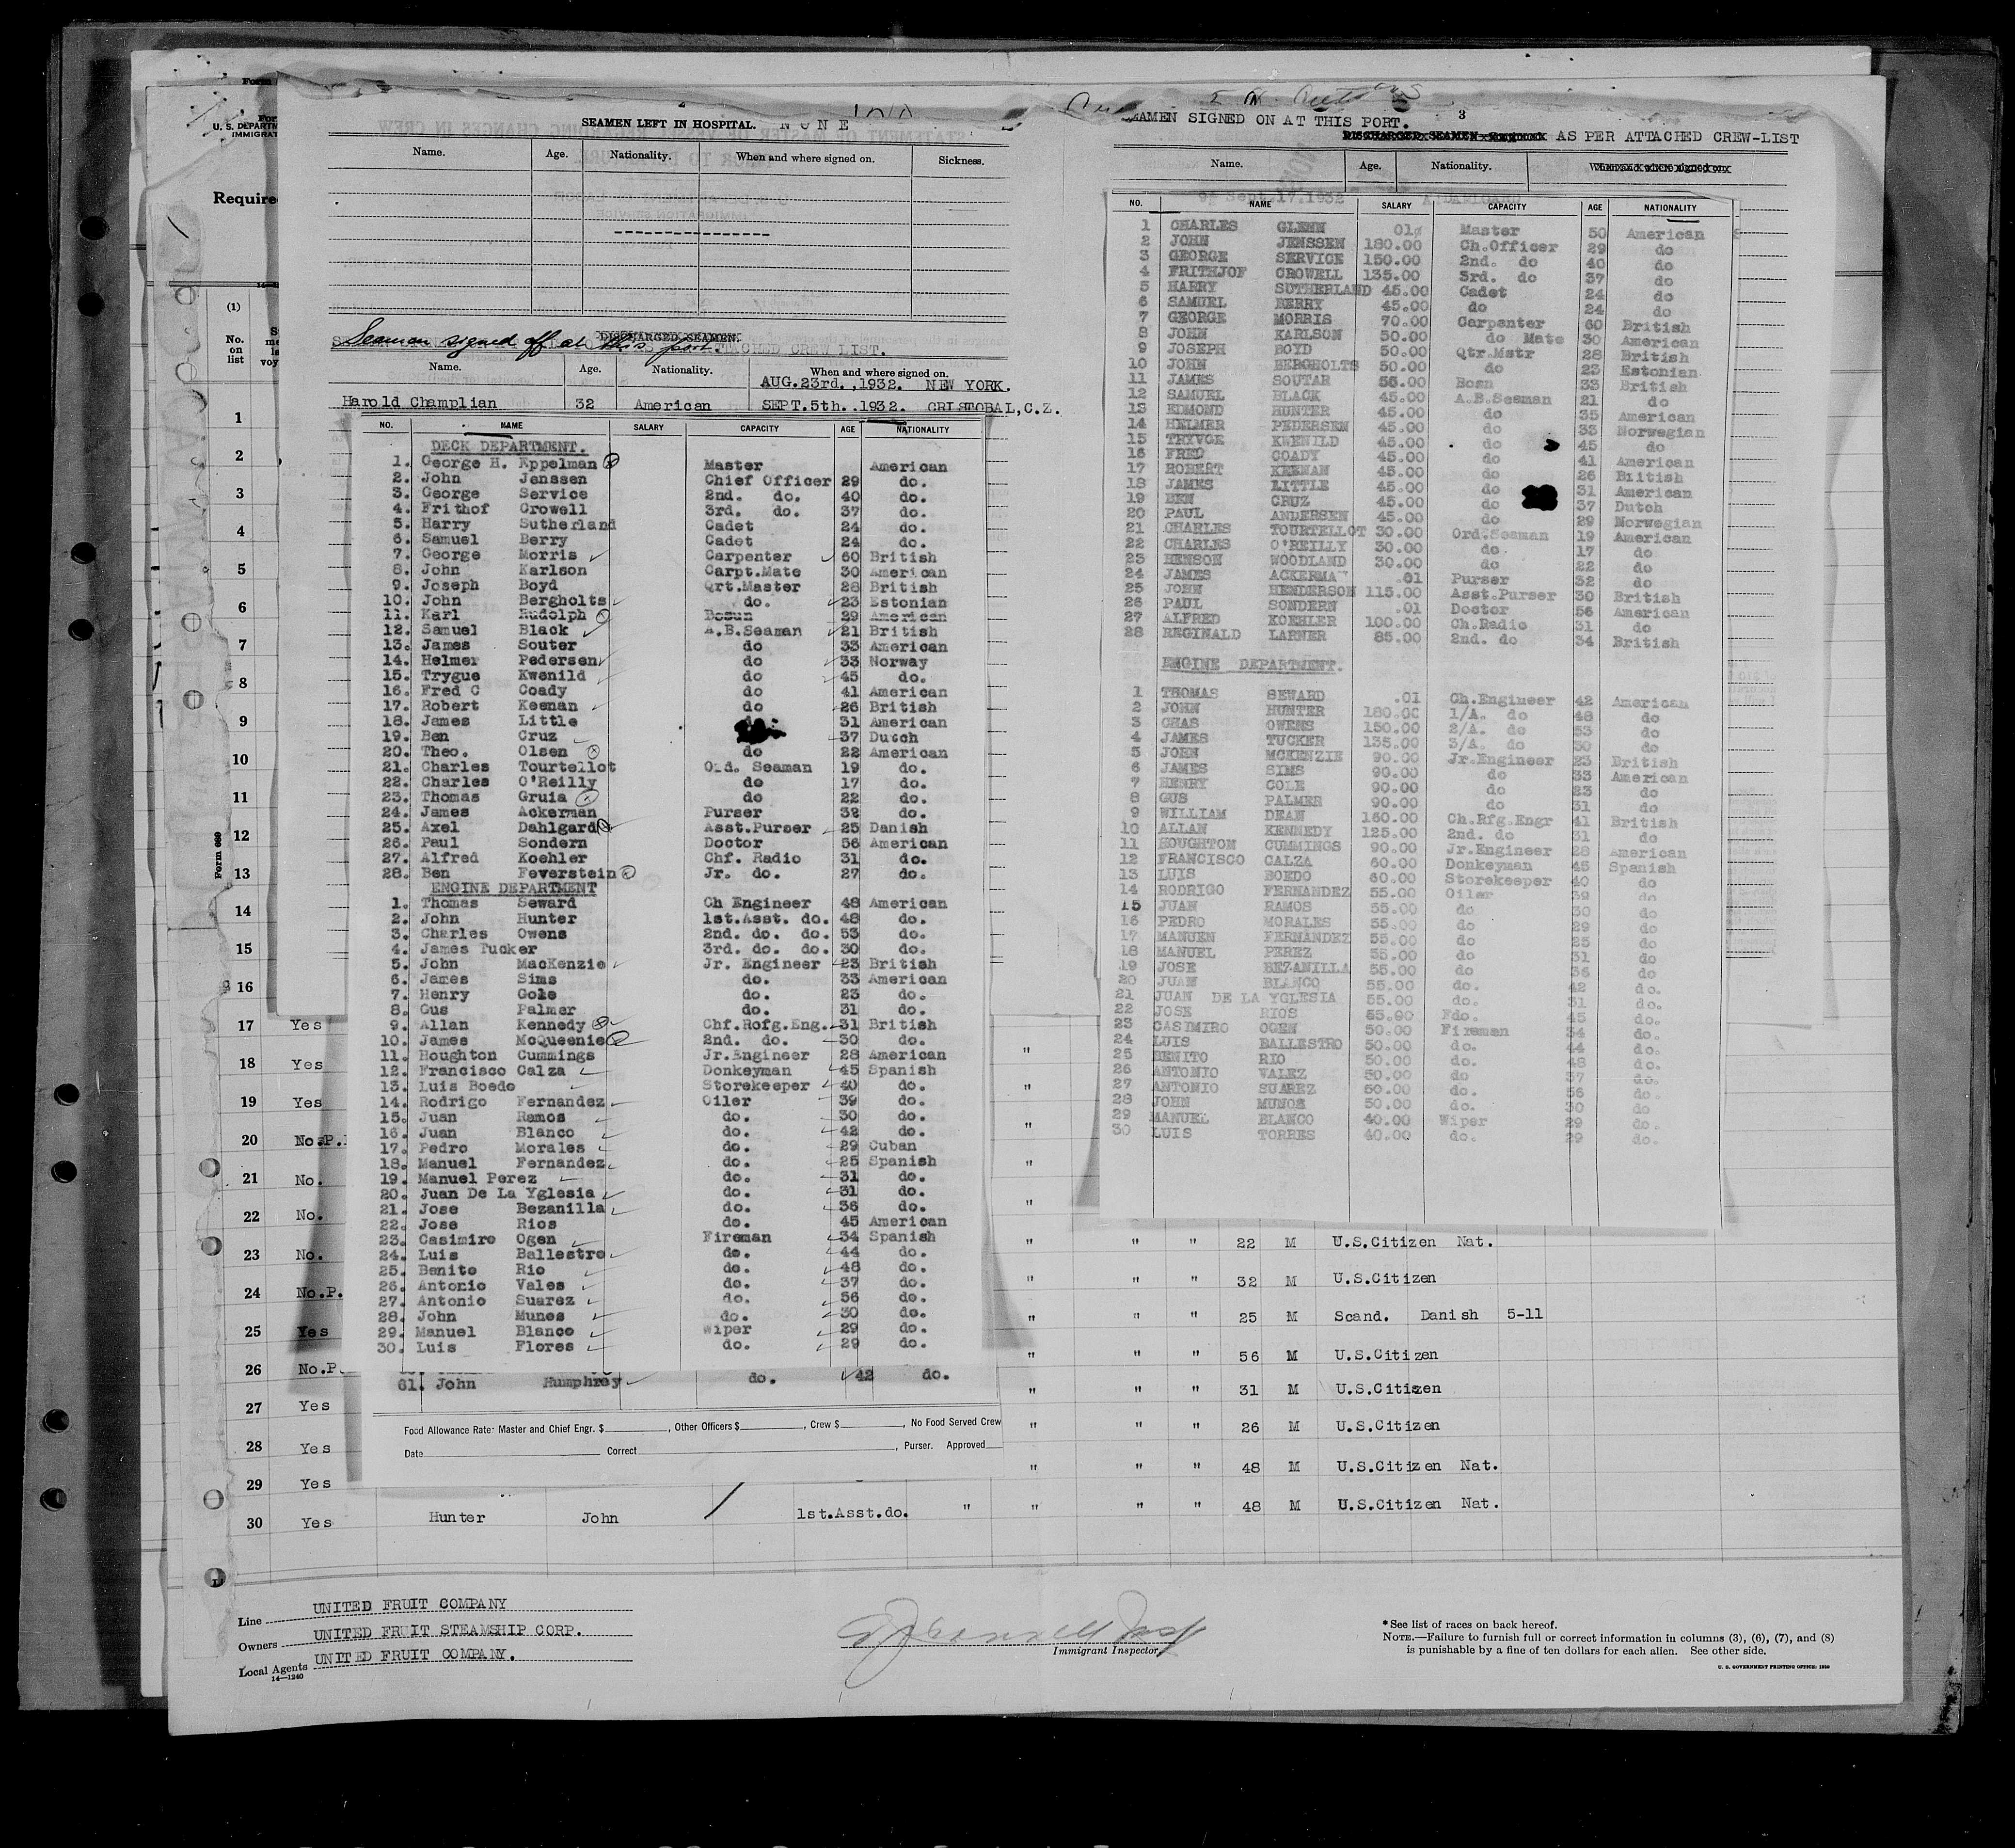 SEAMEN LEFT IN HOSPITAL. NONE
Name. Age. Nationality. When and where signed on. Sickness.
Seamen signed off at this port.
DISCHARGED SEAMEN.
ATTACHED CREW LIST.
Name. Age. Nationality. When and where signed on.
AUG.23rd.,1932. NEW YORK.
Harold Champlian 32 American SEPT.5th..1932. CRISTOBAL,C.Z.
NO. NAME SALARY CAPACITY AGE NATIONALITY
DECK DEPARTMENT.
1. George H. Eppelman Master American
2. John Jenssen Chief Officer 29 do.
3. George Service 2nd. do. 40 do.
4. Frithof Crowell 3rd. do. 37 do.
5. Harry Sutherland Cadet 24 do.
6. Samuel Berry Cadet 24 do.
7. George Morris Carpenter 60 British
8. John Karlson Carpt.Mate 30 American
9. Joseph Boyd Qrt.Master 28 British
10. John Bergholts do. 23 Estonian
11. Karl Rudolph Bosun 29 American
12. Samuel Black A.B.Seaman 21 British
13. James Souter do 33 American
14. Helmer Pedersen do 33 Norway
15. Trygue Kwenild do 45 do.
16. Fred C Coady do 41 American
17. Robert Keenan do 26 British
18. James Little 31 American
19. Ben Cruz 37 Dutch
20. Theo. Olsen do 22 American
21. Charles Tourtellot Ord. Seaman 19 do.
22. Charles O'Reilly do 17 do.
23. Thomas Gruia do 22 do.
24. James Ackerman Purser 32 do.
25. Axel Dahlgard Asst.Purser 25 Danish
26. Paul Sondern Doctor 56 American
27. Alfred Koehler Chf. Radio 31 do.
28. Ben Feverstein Jr. do. 27 do.
ENGINE DEPARTMENT
1. Thomas Seward Ch Engineer 48 American
2. John Hunter 1st.Asst. do. 48 do.
3. Charles Owens 2nd. do. do. 53 do.
4. James Tucker 3rd. do. do. 30 do.
5. John MacKenzie Jr. Engineer 23 British
6. James Sims do. 33 American
7. Henry Cole do. 23 do.
8. Gus Palmer do. 31 do.
9. Allan Kennedy Chf.Rofg.Eng. 31 British
10. James McQueenie 2nd. do. 30 do.
11. Houghton Cummings Jr.Engineer 28 American
12. Francisco Calza Donkeyman 45 Spanish
13. Luis Boedo Storekeeper 40 do.
14. Rodrigo Fernandez Oiler 39 do.
15. Juan Ramos do. 30 do.
16. Juan Blanco do. 42 do.
17. Pedro Morales do. 29 Cuban
18. Manuel Fernandez do. 25 Spanish
19. Manuel Perez do. 31 do.
20. Juan De La Yglesia do. 31 do.
21. Jose Bezanilla do. 36 do.
22. Jose Rios do. 45 American
23. Casimiro Ogen Fireman 34 Spanish
24. Luis Ballestro do. 44 do.
25. Benito Rio do. 48 do.
26. Antonio Vales do. 37 do.
27. Antonio Suarez do. 56 do.
28. John Munos do. 30 do.
29. Manuel Blanco Wiper 29 do.
30. Luis Flores do. 29 do.
61. John Humphrey do. 42 do.
Food Allowance Rate: Master and Chief Engr. $ , Other Officers $ , Crew $ , No Food Served Crew
Date Correct , Purser. Approved
3
SEAMEN SIGNED ON AT THIS PORT.
DISCHARGED SEAMEN AS PER ATTACHED CREW-LIST
Name. Age. Nationality.
NO. NAME SALARY CAPACITY AGE NATIONALITY
1 CHARLES GLENN .01 Master 50 American
2 JOHN JENSSEN 180.00 Ch.Officer 29 do
3 GEORGE SERVICE 150.00 2nd. do 40 do
4 FRITHJOF CROWELL 135.00 3rd. do 37 do
5 HARRY SUTHERLAND 45.00 Cadet 24 do
6 SAMUEL BERRY 45.00 do 24 do
7 GEORGE MORRIS 70.00 Carpenter 60 British
8 JOHN KARLSON 50.00 do Mate 30 American
9 JOSEPH BOYD 50.00 Qtr.Mstr 28 British
10 JOHN BERGHOLTS 50.00 do 23 Estonian
11 JAMES SOUTAR 55.00 Bosn 33 British
12 SAMUEL BLACK 45.00 A.B.Seaman 21 do
13 EDMOND HUNTER 45.00 do 35 American
14 HELMER PEDERSEN 45.00 do 33 Norwegian
15 TRYVGE KWENILD 45.00 do 45 do
16 FRED COADY 45.00 do 41 American
17 ROBERT KEENAN 45.00 do 26 British
18 JAMES LITTLE 45.00 do 31 American
19 BEN CRUZ 45.00 do 37 Dutch
20 PAUL ANDERSEN 45.00 do 29 Norwegian
21 CHARLES TOURTELLOT 30.00 Ord.Seaman 19 American
22 CHARLES O'REILLY 30.00 do 17 do
23 HENSON WOODLAND 30.00 do 22 do
24 JAMES ACKERMAN .01 Purser 32 do
25 JOHN HENDERSON 115.00 Asst.Purser 30 British
26 PAUL SONDERN .01 Doctor 56 American
27 ALFRED KOEHLER 100.00 Ch.Radio 31 do
28 REGINALD LARNER 85.00 2nd. do 34 British
ENGINE DEPARTMENT.
1 THOMAS SEWARD .01 Ch.Engineer 42 American
2 JOHN HUNTER 180.00 1/A. do 48 do
3 CHAS OWENS 150.00 2/A. do 53 do
4 JAMES TUCKER 135.00 3/A. do 30 do
5 JOHN MCKENZIE 90.00 Jr.Engineer 23 British
6 JAMES SIMS 90.00 do 33 American
7 HENRY COLE 90.00 do 23 do
8 GUS PALMER 90.00 do 31 do
9 WILLIAM DEAN 160.00 Ch.Rfg.Engr 41 British
10 ALLAN KENNEDY 125.00 2nd. do 31 do
11 HOUGHTON CUMMINGS 90.00 Jr.Engineer 28 American
12 FRANCISCO CALZA 60.00 Donkeyman 45 Spanish
13 LUIS BOEDO 60.00 Storekeeper 40 do
14 RODRIGO FERNANDEZ 55.00 Oiler 39 do
15 JUAN RAMOS 55.00 do 30 do
16 PEDRO MORALES 55.00 do 29 do
17 MANUEN FERNANDEZ 55.00 do 25 do
18 MANUEL PEREZ 55.00 do 31 do
19 JOSE BEZANILLA 55.00 do 36 do
20 JUAN BLANCO 55.00 do. 42 do.
21 JUAN DE LA YGLESIA 55.00 do. 31 do.
22 JOSE RIOS 55.00 Fdo. 45 do.
23 CASIMIRO OGEN 50.00 Fireman 34 do.
24 LUIS BALLESTRO 50.00 do. 44 do.
25 BENITO RIO 50.00 do. 48 do.
26 ANTONIO VALEZ 50.00 do 37 do.
27 ANTONIO SUAREZ 50.00 do. 56 do.
28 JOHN MUNOS 50.00 do. 30 do
29 MANUEL BLANCO 40.00 Wiper 29 do.
30 LUIS TORRES 40.00 do. 29 do.
Form
U. S. DEPARTM
IMMIGRAT
Require
(1)
No. on list
Form 689
1
2
3
4
5
6
7
8
9
10
11
12
13
14
15
16
17 Yes
18 Yes "
19 Yes "
20 No.P. "
21 No. "
22 No. "
23 No. " " " 22 M U.S.Citizen Nat.
24 No.P. " " " 32 M U.S.Citizen
25 Yes " " " 25 M Scand. Danish 5-11
26 No.P. " " " 56 M U.S.Citizen
27 Yes " " " 31 M U.S.Citizen
28 Yes " " " 26 M U.S.Citizen
29 Yes " " " 48 M U.S.Citizen Nat.
30 Yes Hunter John 1st.Asst.do. " " " " 48 M U.S.Citizen Nat.
Line UNITED FRUIT COMPANY
Owners UNITED FRUIT STEAMSHIP CORP.
Local Agents UNITED FRUIT COMPANY.
14—1240
Immigrant Inspector
* See list of races on back hereof.
NOTE.—Failure to furnish full or correct information in columns (3), (6), (7), and (8)
is punishable by a fine of ten dollars for each alien. See other side.
U. S. GOVERNMENT PRINTING OFFICE: 1930